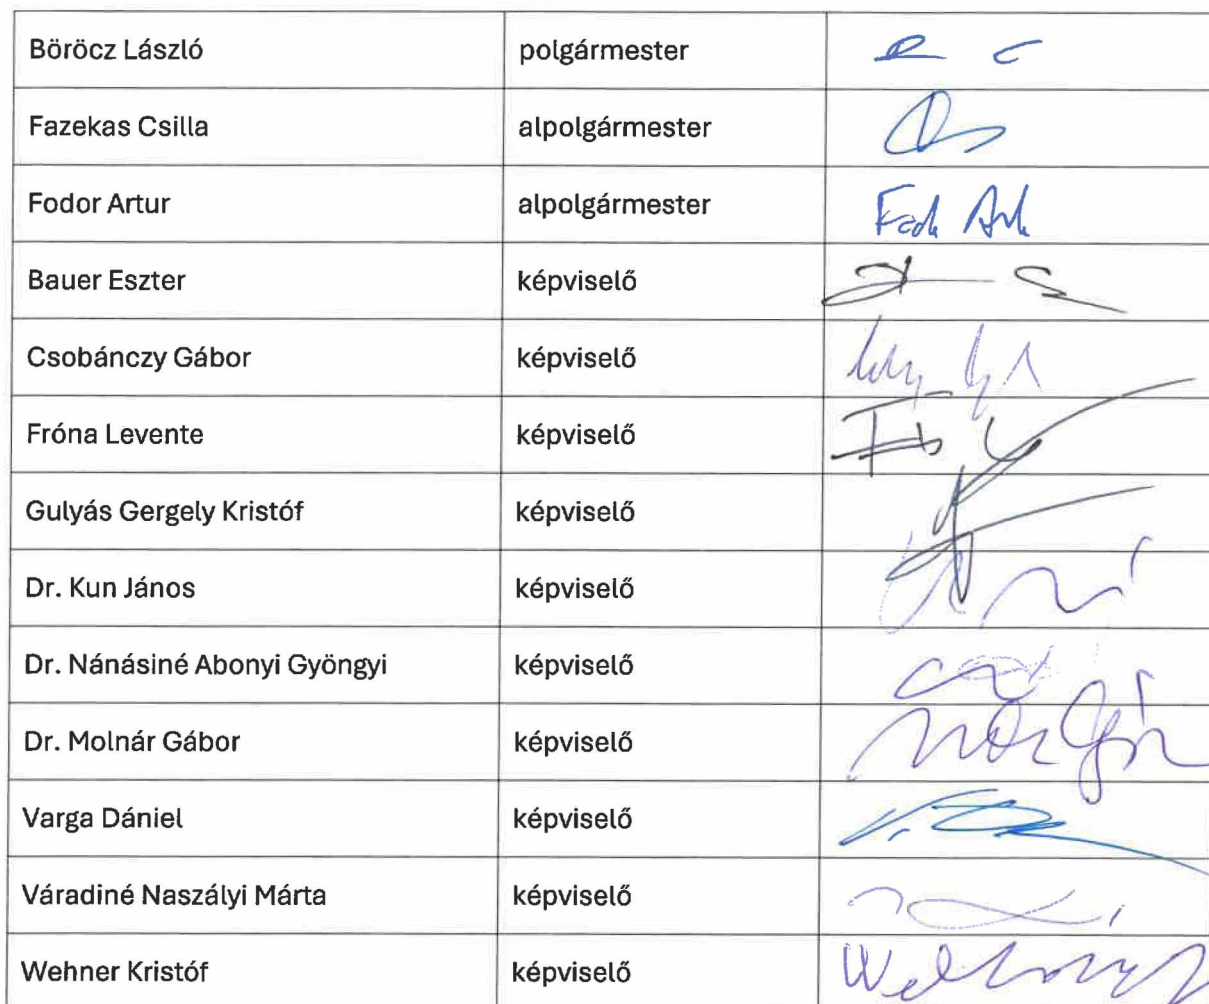 Böröcz László polgármester
Fazekas Csilla alpolgármester
Fodor Artur alpolgármester
Bauer Eszter képviselő
Csobánczy Gábor képviselő
Fróna Levente képviselő
Gulyás Gergely Kristóf képviselő
Dr. Kun János képviselő
Dr. Nánásiné Abonyi Gyöngyi képviselő
Dr. Molnár Gábor képviselő
Varga Dániel képviselő
Váradiné Naszályi Márta képviselő
Wehner Kristóf képviselő